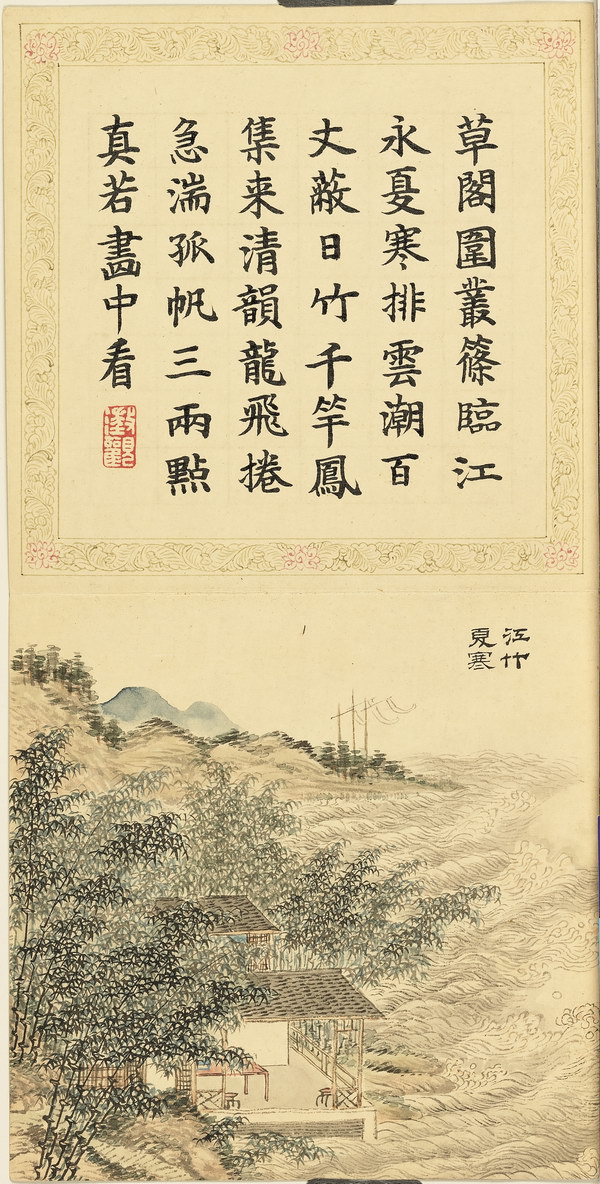 草閣圍叢篠臨江
永夏寒排雲潮百
丈蔽日竹千竿鳳
集来清韻龍飛捲
急湍孤帆三兩點
真若畫中看
江竹
夏寒